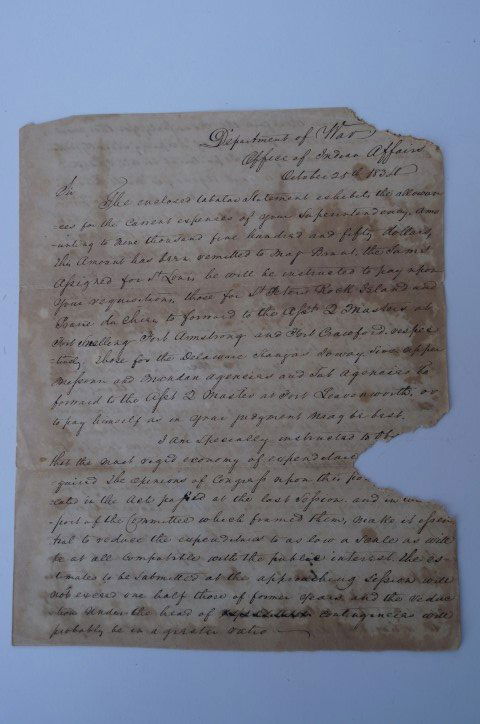 Department of War
Office of Indian Affairs
October 25th 1834
Sir
The enclosed tabular Statement exhibits the allowan
=ces for the Current expenses of your Superintendency, amo
=unting to Nine thousand five hundred and fifty dollars,
this Amount has been remitted to Maj Brant, the Summit
Assigned for St Louis he will be instructed to pay upon
your requisitions, those for St Peters Rock Island and
Prarie du Chien to forward to the Asst Q Masters at
Fort Snelling Fort Armstrong and Fort Crawford. respec
=tively, those for the Delaware Ioway, upper
Missouri and Mandan agencies and Sub Agencies to
forward to the Asst Q Master at Fort Leavenworth, or
to pay himself as in your judgment may be best.
I am Specially instructed to
that the most reged economy of expenditure
=quired The opinions of Congress upon this
=cated in the Acts passed at the last Session. and in
=port of the Committee which framed them, make it essen
tial to reduce the expenditures to as low a Scale as will
be at all Compatible with the public interest. the es-
timates to be Submitted at the approaching Session will
not exceed one half those of former years, and the reduc
tion under the head of contingencies will
probably be in a greater ratio